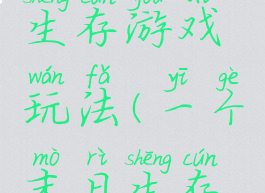 shēng cún yóu xì
生存游戏
wán fǎ yī gè
玩法(一个
mò rì shēng cún
末日生存